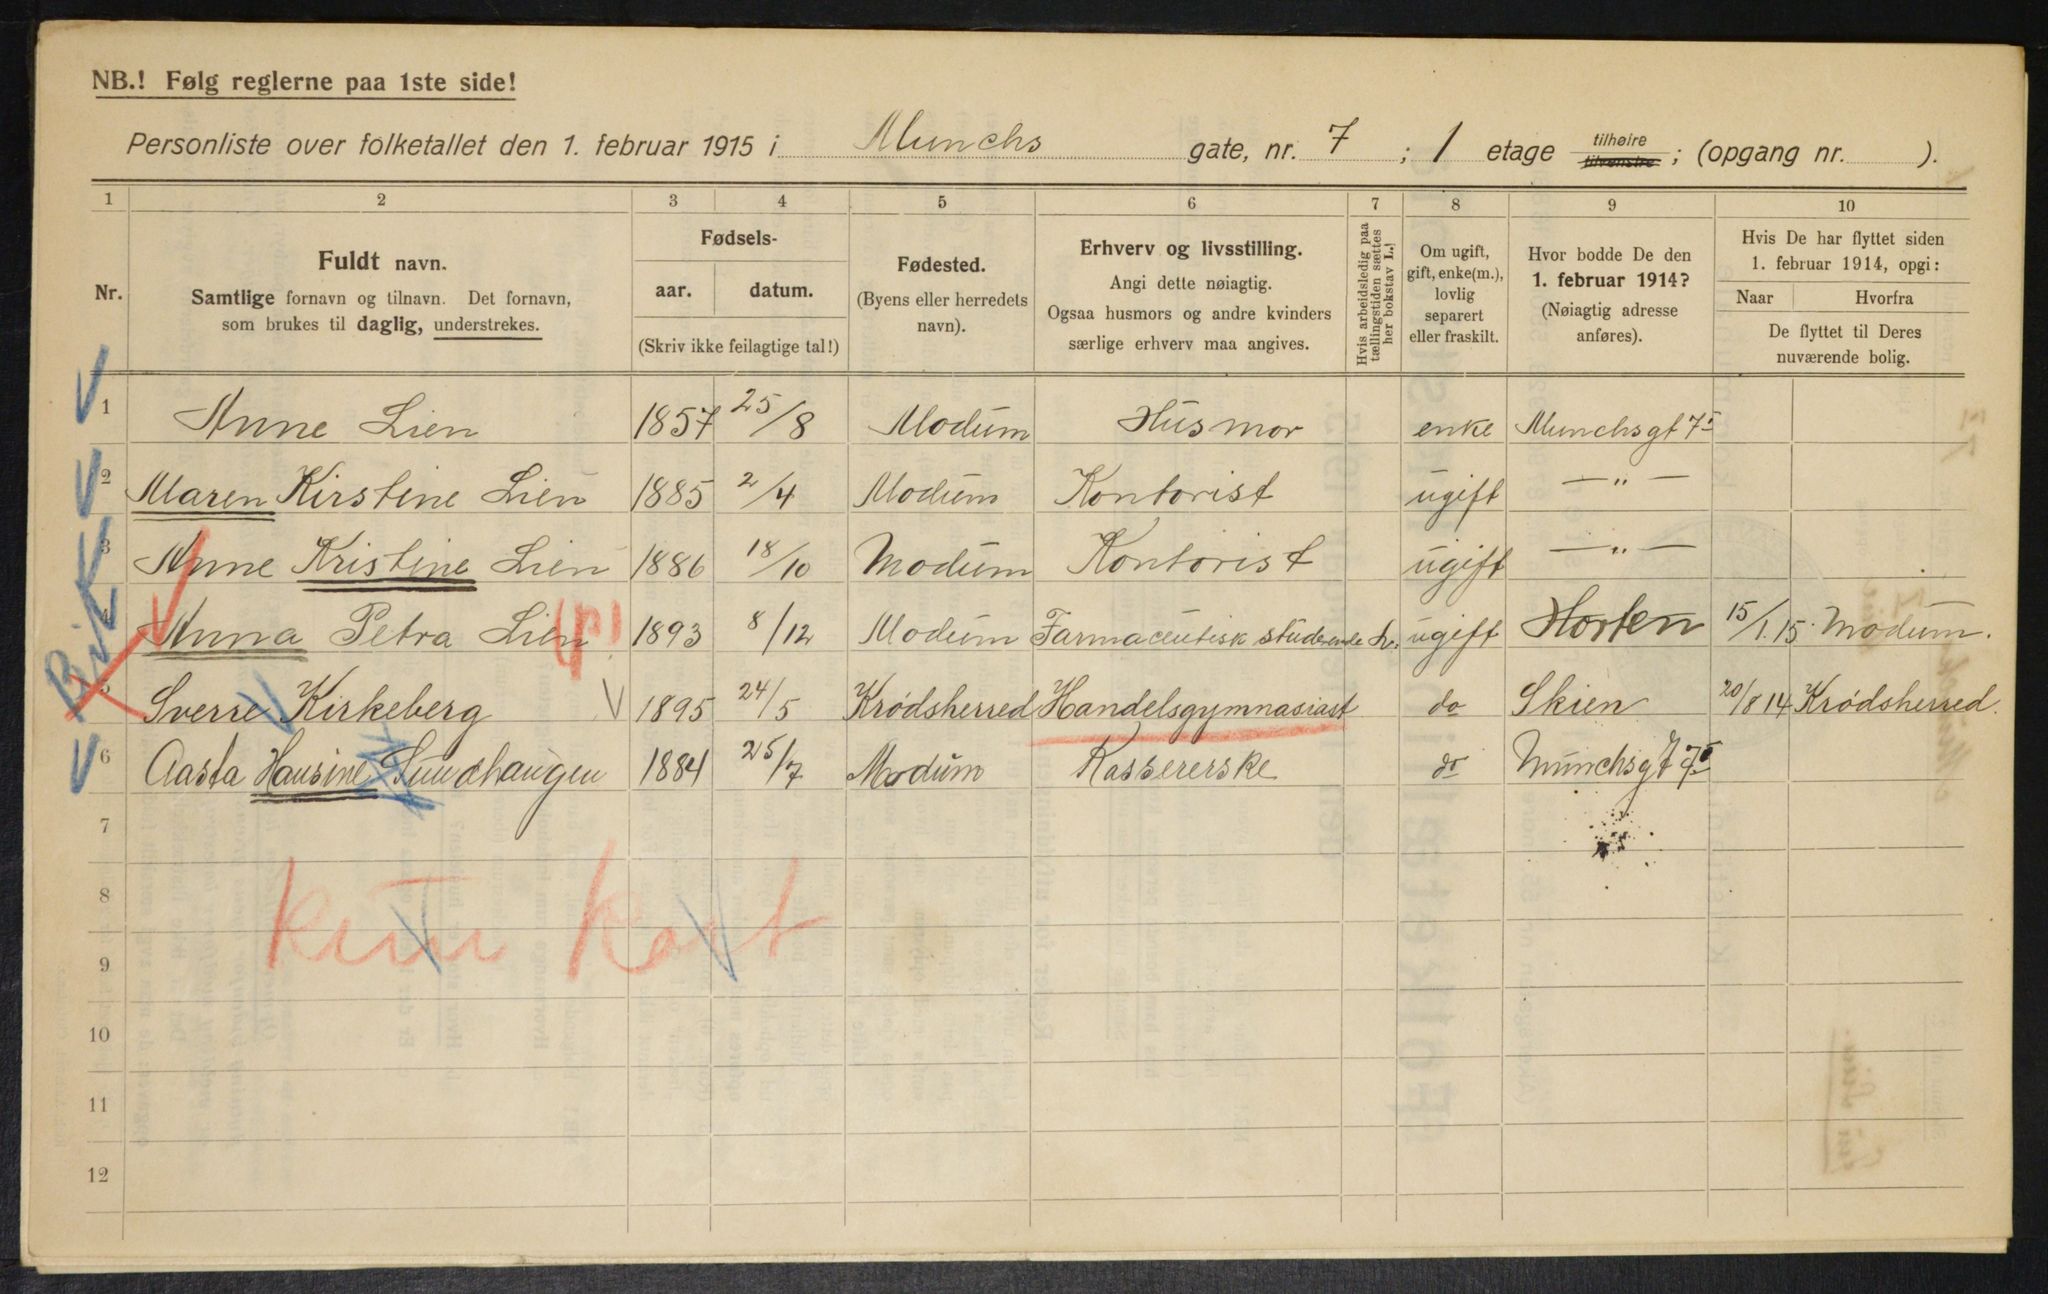 NB.! Følg reglerne paa 1ste side!
Personliste over folketallet den 1. februar 1915 i Munchs gate, nr. 7 ; 1 etage tilhøire tilvenstre ; (opgang nr. ).
1 2 3 4 5 6 7 8 9 10
Nr.
Fuldt navn.
Samtlige fornavn og tilnavn. Det fornavn,
som brukes til daglig, understrekes.
Fødsels-
aar. datum.
(Skriv ikke feilagtige tal!)
Fødested.
(Byens eller herredets
navn).
Erhverv og livsstilling.
Angi dette nøiagtig.
Ogsaa husmors og andre kvinders
særlige erhverv maa angives.
Hvis arbeidsledig paa
tællingstiden sættes
her bokstav L.!
Om ugift,
gift, enke(m.),
lovlig
separert
eller fraskilt.
Hvor bodde De den
1. februar 1914?
(Nøiagtig adresse
anføres).
Hvis De har flyttet siden
1. februar 1914, opgi:
Naar Hvorfra
De flyttet til Deres
nuværende bolig.
1 Anne Lien 1857 25/8 Modum Husmor enke Munchsgt 7I
2 Maren Kirstine Lien 1885 2/4 Modum Kontorist ugift — „ —
3 Anne Kristine Lien 1886 18/10 Modum Kontorist ugift — „ —
4 Anna Petra Lien 1893 8/12 Modum Farmaceutisk studerende L. ugift Horten 15/1.15 Modum.
5 Sverre Kirkeberg 1895 24/5 Krødsherred Handelsgymnasiast do Skien 20/8 14 Krødsherred.
6 Aasta Hansine Sundhaugen 1884 25/7 Modum Kassererske do Munchsgt 7I
7
8
9
10
11
12